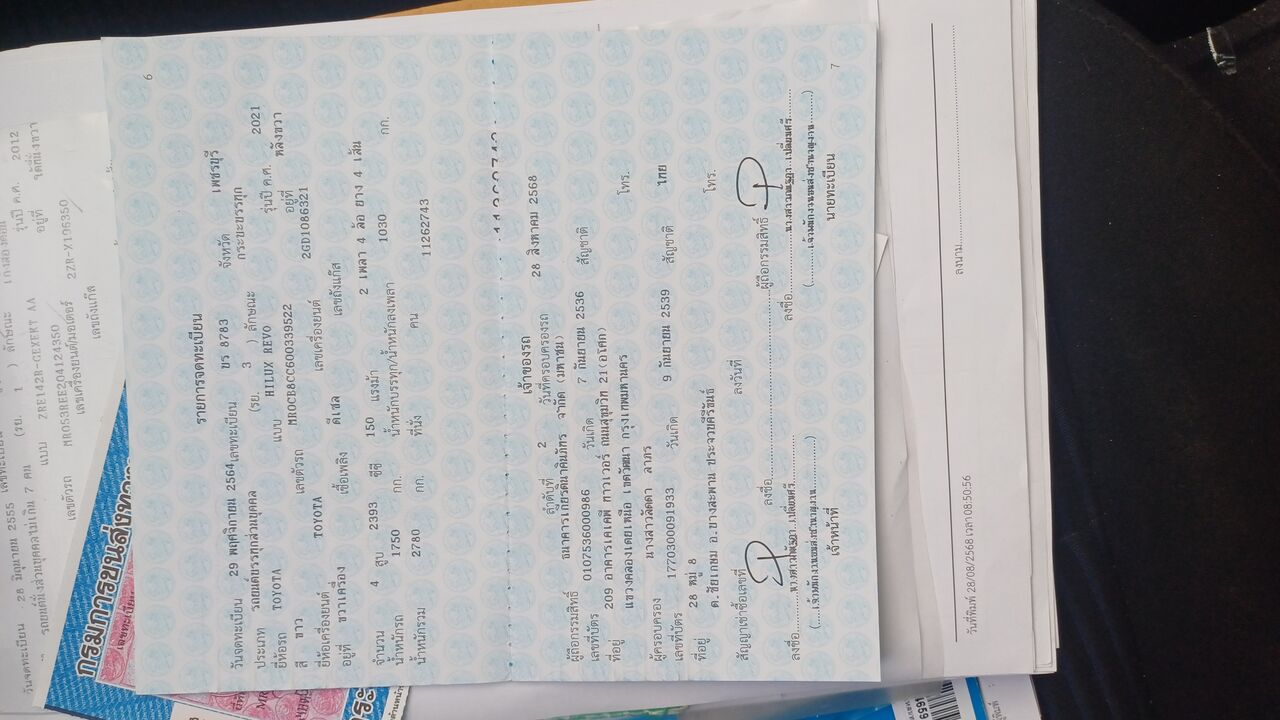 6
รายการจดทะเบียน
วันจดทะเบียน 29 พฤศจิกายน 2564 เลขทะเบียน ขร 8783 จังหวัด เพชรบุรี
ประเภท รถยนต์บรรทุกส่วนบุคคล (รย. 3 ) ลักษณะ กระบะบรรทุก
ยี่ห้อรถ TOYOTA แบบ HILUX REVO รุ่นปี ค.ศ. 2021
สี ขาว เลขตัวรถ MR0CB8CC600339522 อยู่ที่ หลังขวา
ยี่ห้อเครื่องยนต์ TOYOTA เลขเครื่องยนต์ 2GD1086321
อยู่ที่ ขวาเครื่อง เชื้อเพลิง ดีเซล เลขถังแก๊ส
จำนวน 4 สูบ 2393 ซีซี 150 แรงม้า 2 เพลา 4 ล้อ ยาง 4 เส้น
น้ำหนักรถ 1750 กก. น้ำหนักบรรทุก/น้ำหนักลงเพลา 1030 กก.
น้ำหนักรวม 2780 กก. ที่นั่ง คน 11262743
เจ้าของรถ
ลำดับที่ 2 วันที่ครอบครองรถ 28 สิงหาคม 2568
ผู้ถือกรรมสิทธิ์ ธนาคารเกียรตินาคินภัทร จำกัด (มหาชน)
เลขที่บัตร 0107536000986 วันเกิด 7 กันยายน 2536 สัญชาติ
ที่อยู่ 209 อาคารเคเคพี ทาวเวอร์ ถนนสุขุมวิท 21(อโศก) โทร.
แขวงคลองเตยเหนือ เขตวัฒนา กรุงเทพมหานคร
ผู้ครอบครอง นางสาววลัดดา ลาภร
เลขที่บัตร 1770300091933 วันเกิด 9 กันยายน 2539 สัญชาติ ไทย
ที่อยู่ 28 หมู่ 8 โทร.
ต.ชัยเกษม อ.บางสะพาน ประจวบคีรีขันธ์
สัญญาเช่าซื้อเลขที่ ลงวันที่
ลงชื่อ ผู้ถือกรรมสิทธิ์
ลงชื่อ ลงชื่อ
เจ้าหน้าที่ นายทะเบียน
7
วันที่พิมพ์ 28/08/2568 เวลา 08:50:56
ลงนาม
วันจดทะเบียน 28 มิถุนายน 2555
รถยนต์นั่งส่วนบุคคลไม่เกิน 7 คน (รย. 1 ) ลักษณะ
แบบ ZRE142R-GEXEKT AA รุ่นปี ค.ศ. 2012
เลขตัวรถ MR053REE204124350 อยู่ที่
เลขเครื่องยนต์/มอเตอร์ 2ZR-X106350
เลขถังแก๊ส
กรมการขนส่งทาง